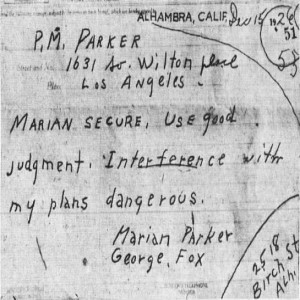 ALHAMBRA, CALIF. Dec 15
P.M. PARKER
1631 So. Wilton place
LOS ANGELES.
MARIAN SECURE, USE good
judgment. Interference with
my plans dangerous.
Marian Parker
George Fox
2518
Birch St
Alh.